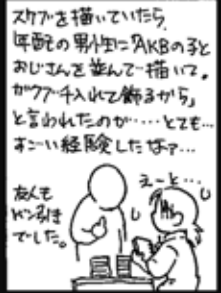 スケブを描いていたら、
年配の男性に「AKBの子と
おじさんを並んで描いて。
ガクブチ入れて飾るから」
と言われたのが……とても…
すごい経験したなァ…
えーと…
友人も
ドン引き
でした。